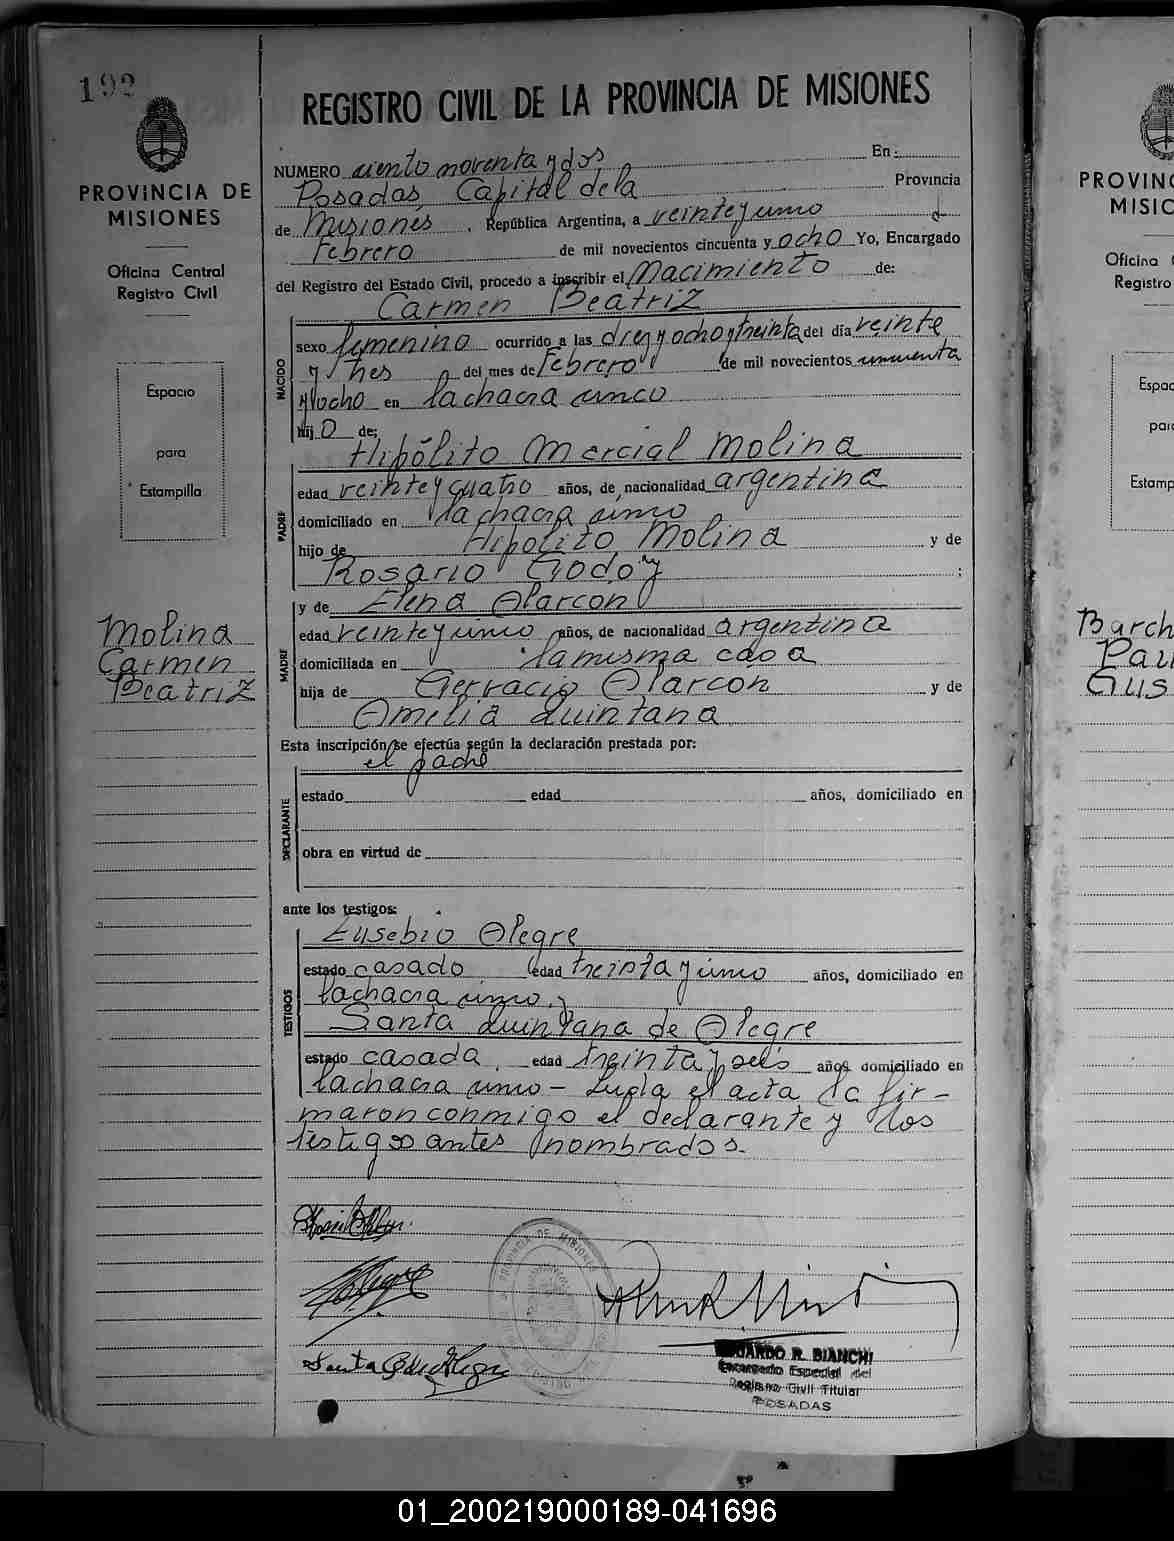 192
PROVINCIA DE
MISIONES
Oficina Central
Registro Civil
Espacio
para
Estampilla
Molina
Carmen
Beatriz
REGISTRO CIVIL DE LA PROVINCIA DE MISIONES
NUMERO ciento noventa y dos En:
Posadas Capital de la Provincia
de Misiones, República Argentina, a veinte y uno d
Febrero de mil novecientos cincuenta y ocho Yo, Encargado
del Registro del Estado Civil, procedo a inscribir el Nacimiento de:
Carmen Beatriz
NACIDO
sexo femenino ocurrido a las diez y ocho y treinta del día veinte
y tres del mes de Febrero de mil novecientos cincuenta
y ocho en la chacra unco
hijo de:
Hipólito Marcial Molina
PADRE
edad veinte y cuatro años, de nacionalidad argentina
domiciliado en la chacra uno
hijo de Hipolito Molina y de
Rosario Godoy ;
MADRE
y de Elena Alarcon
edad veinte y uno años, de nacionalidad argentina
domiciliada en la misma casa
hija de Gervacio Alarcon y de
Amelia Quintana
Esta inscripción se efectúa según la declaración prestada por:
el padre
DECLARANTE
estado edad años, domiciliado en
obra en virtud de
ante los testigos:
TESTIGOS
Eusebio Alegre
estado casado edad treinta y uno años, domiciliado en
la chacra uno y
Santa Quintana de Alegre
estado casada edad treinta y seis años domiciliado en
la chacra uno - Leida el acta la fir-
maron conmigo el declarante y los
testigos antes nombrados.
Santa Q de Alegre
EDUARDO R. BIANCHI
Encargado Especial del
Registro Civil Titular
POSADAS
PROVINC
MISIC
Oficina
Registro
Espac
para
Estamp
Barch
Pau
Gus
01_200219000189-041696